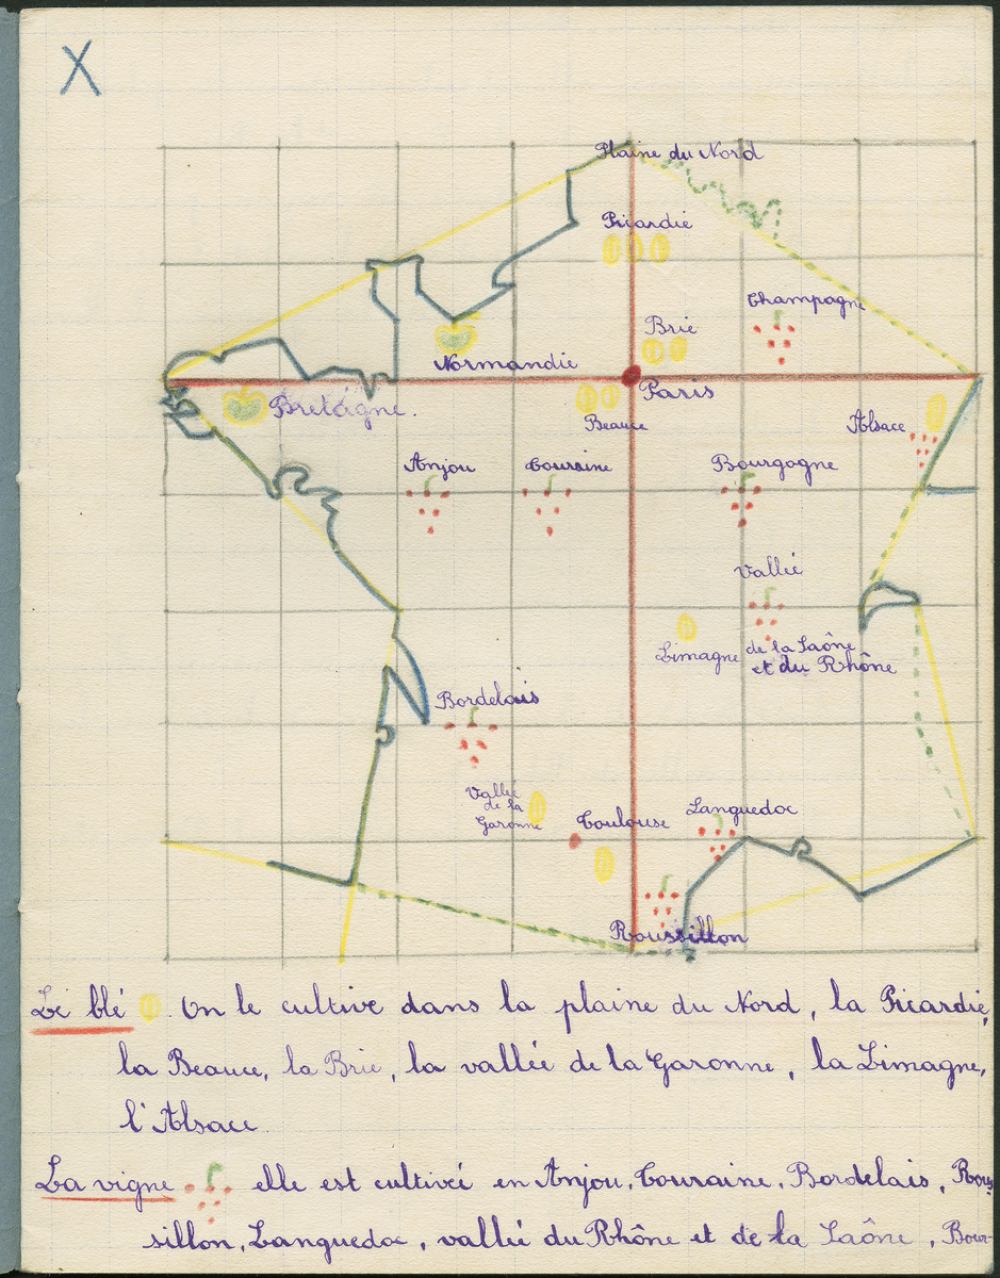 X
Plaine du Nord
Picardie
Champagne
Brie
Normandie
Paris
Bretagne.
Beauce
Alsace
Anjou
Touraine
Bourgogne
Vallée
de la Saône
et du Rhône
Limagne
Bordelais
Vallée
de la
Garonne
Toulouse
Languedoc
Roussillon
Le blé . On le cultive dans la plaine du Nord, la Picardie,
la Beauce, la Brie, la vallée de la Garonne, la Limagne,
l'Alsace
La vigne elle est cultivée en Anjou, Touraine, Bordelais, Rous
sillon, Languedoc, vallée du Rhône et de la Saône, Bour-